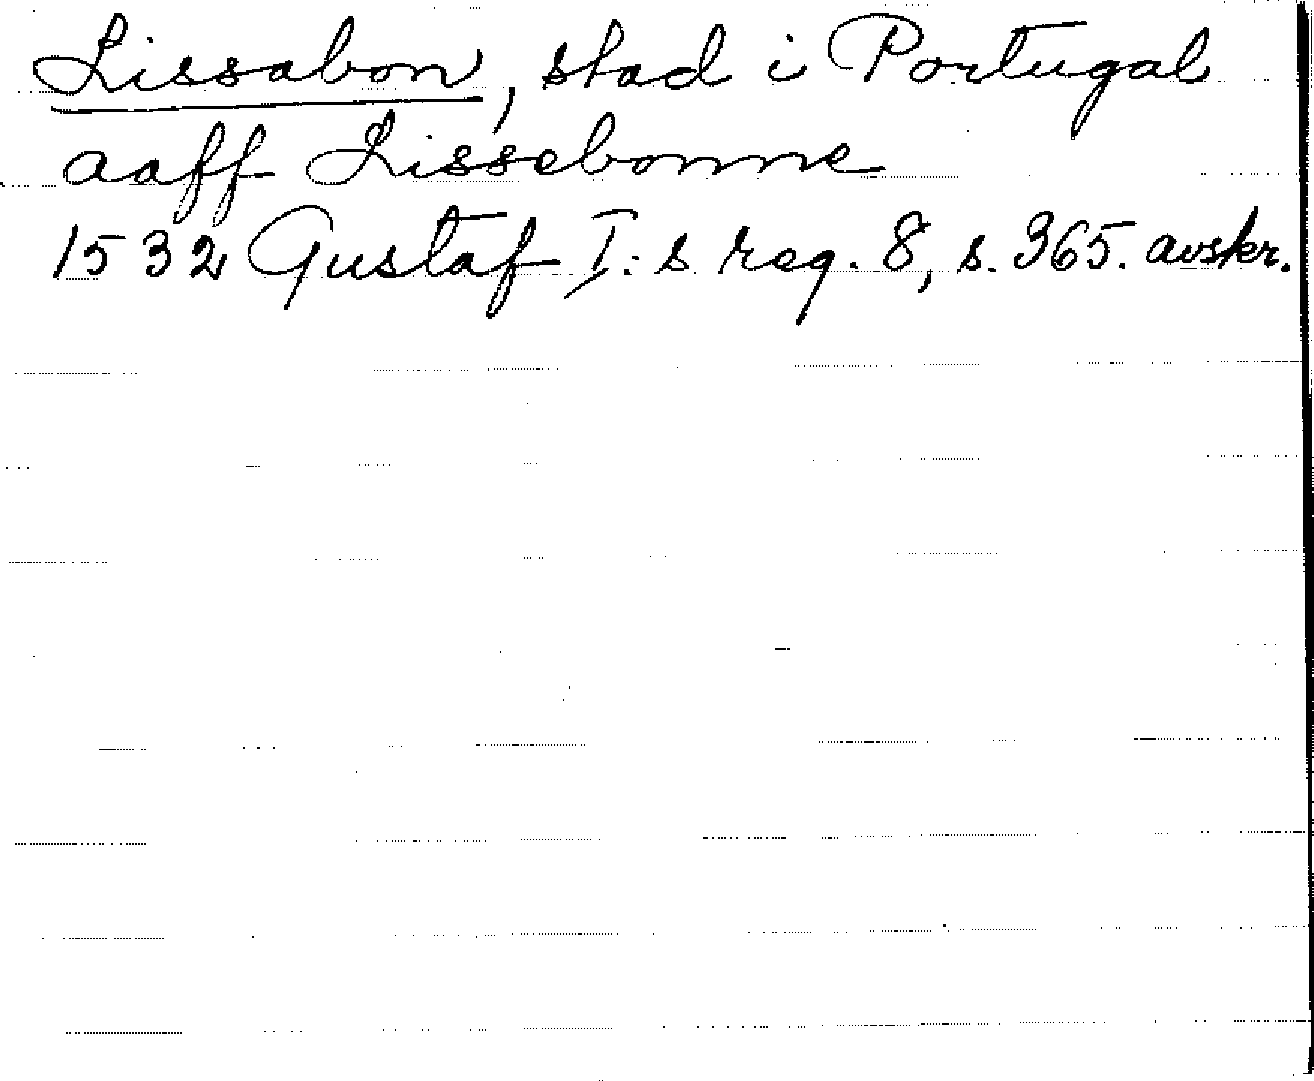 Lissabon, stad i Portugal
aaff Lissebonne
1532 Gustaf I:s reg. 8, s. 365. avskr.